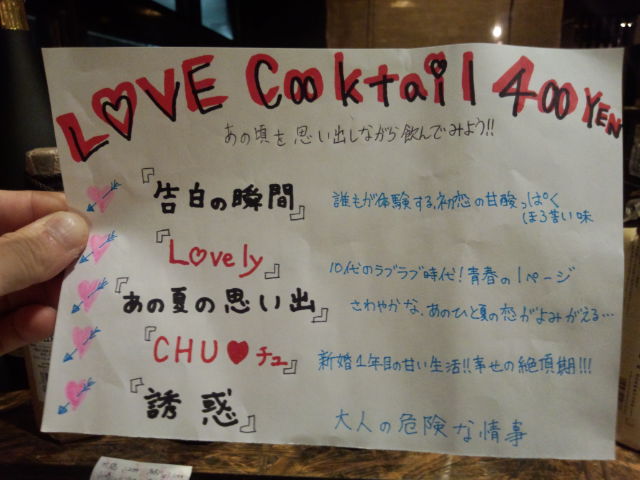 LOVE Cooktail 400 YEN
あの頃を思い出しながら飲んでみよう!!
『告白の瞬間』
誰もが体験する、初恋の甘酸っぱく
ほろ苦い味
『Lovely』
10代のラブラブ時代!青春の1ページ
『あの夏の思い出』
さわやかな、あのひと夏の恋がよみがえる…
『CHU♥チュ』
新婚1年目の甘い生活!!幸せの絶頂期!!!
『誘惑』
大人の危険な情事